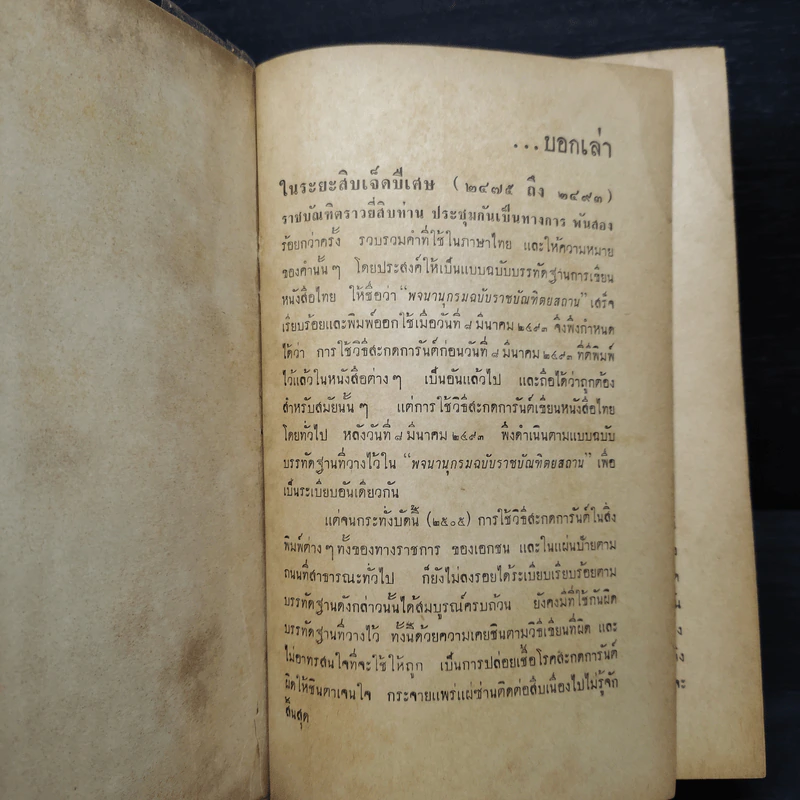 ...บอกเล่า
ในระยะสิบเจ็ดปีเศษ (๒๔๗๕ ถึง ๒๔๙๓)
ราชบัณฑิตราวยี่สิบท่าน ประชุมกันเป็นทางการ พันสอง
ร้อยกว่าครั้ง รวบรวมคำที่ใช้ในภาษาไทย และให้ความหมาย
ของคำนั้น ๆ โดยประสงค์ให้เป็นแบบฉบับบรรทัดฐานการเขียน
หนังสือไทย ให้ชื่อว่า “พจนานุกรมฉบับราชบัณฑิตยสถาน” เสร็จ
เรียบร้อยและพิมพ์ออกใช้เมื่อวันที่ ๘ มีนาคม ๒๔๙๓ จึงพึงกำหนด
ได้ว่า การใช้วิธีสะกดการันต์ก่อนวันที่ ๘ มีนาคม ๒๔๙๓ ที่ตีพิมพ์
ไว้แล้วในหนังสือต่าง ๆ เป็นอันแล้วไป และถือได้ว่าถูกต้อง
สำหรับสมัยนั้น ๆ แต่การใช้วิธีสะกดการันต์เขียนหนังสือไทย
โดยทั่วไป หลังวันที่ ๘ มีนาคม ๒๔๙๓ พึงดำเนินตามแบบฉบับ
บรรทัดฐานที่วางไว้ใน “พจนานุกรมฉบับราชบัณฑิตยสถาน” เพื่อ
เป็นระเบียบอันเดียวกัน
แต่จนกระทั่งบัดนี้ (๒๕๐๕) การใช้วิธีสะกดการันต์ในสิ่ง
พิมพ์ต่าง ๆ ทั้งของทางราชการ ของเอกชน และในแผ่นป้ายตาม
ถนนที่สาธารณะทั่วไป ก็ยังไม่ลงรอยได้ระเบียบเรียบร้อยตาม
บรรทัดฐานดังกล่าวนั้นได้สมบูรณ์ครบถ้วน ยังคงมีที่ใช้กันผิด
บรรทัดฐานที่วางไว้ ทั้งนี้ด้วยความเคยชินตามวิธีเขียนที่ผิด และ
ไม่อาทรสนใจที่จะใช้ให้ถูก เป็นการปล่อยเชื้อโรคสะกดการันต์
ผิดให้ชินตาเจนใจ กระจายแพร่แผ่ซ่านติดต่อสืบเนื่องไปไม่รู้จัก
สิ้นสุด